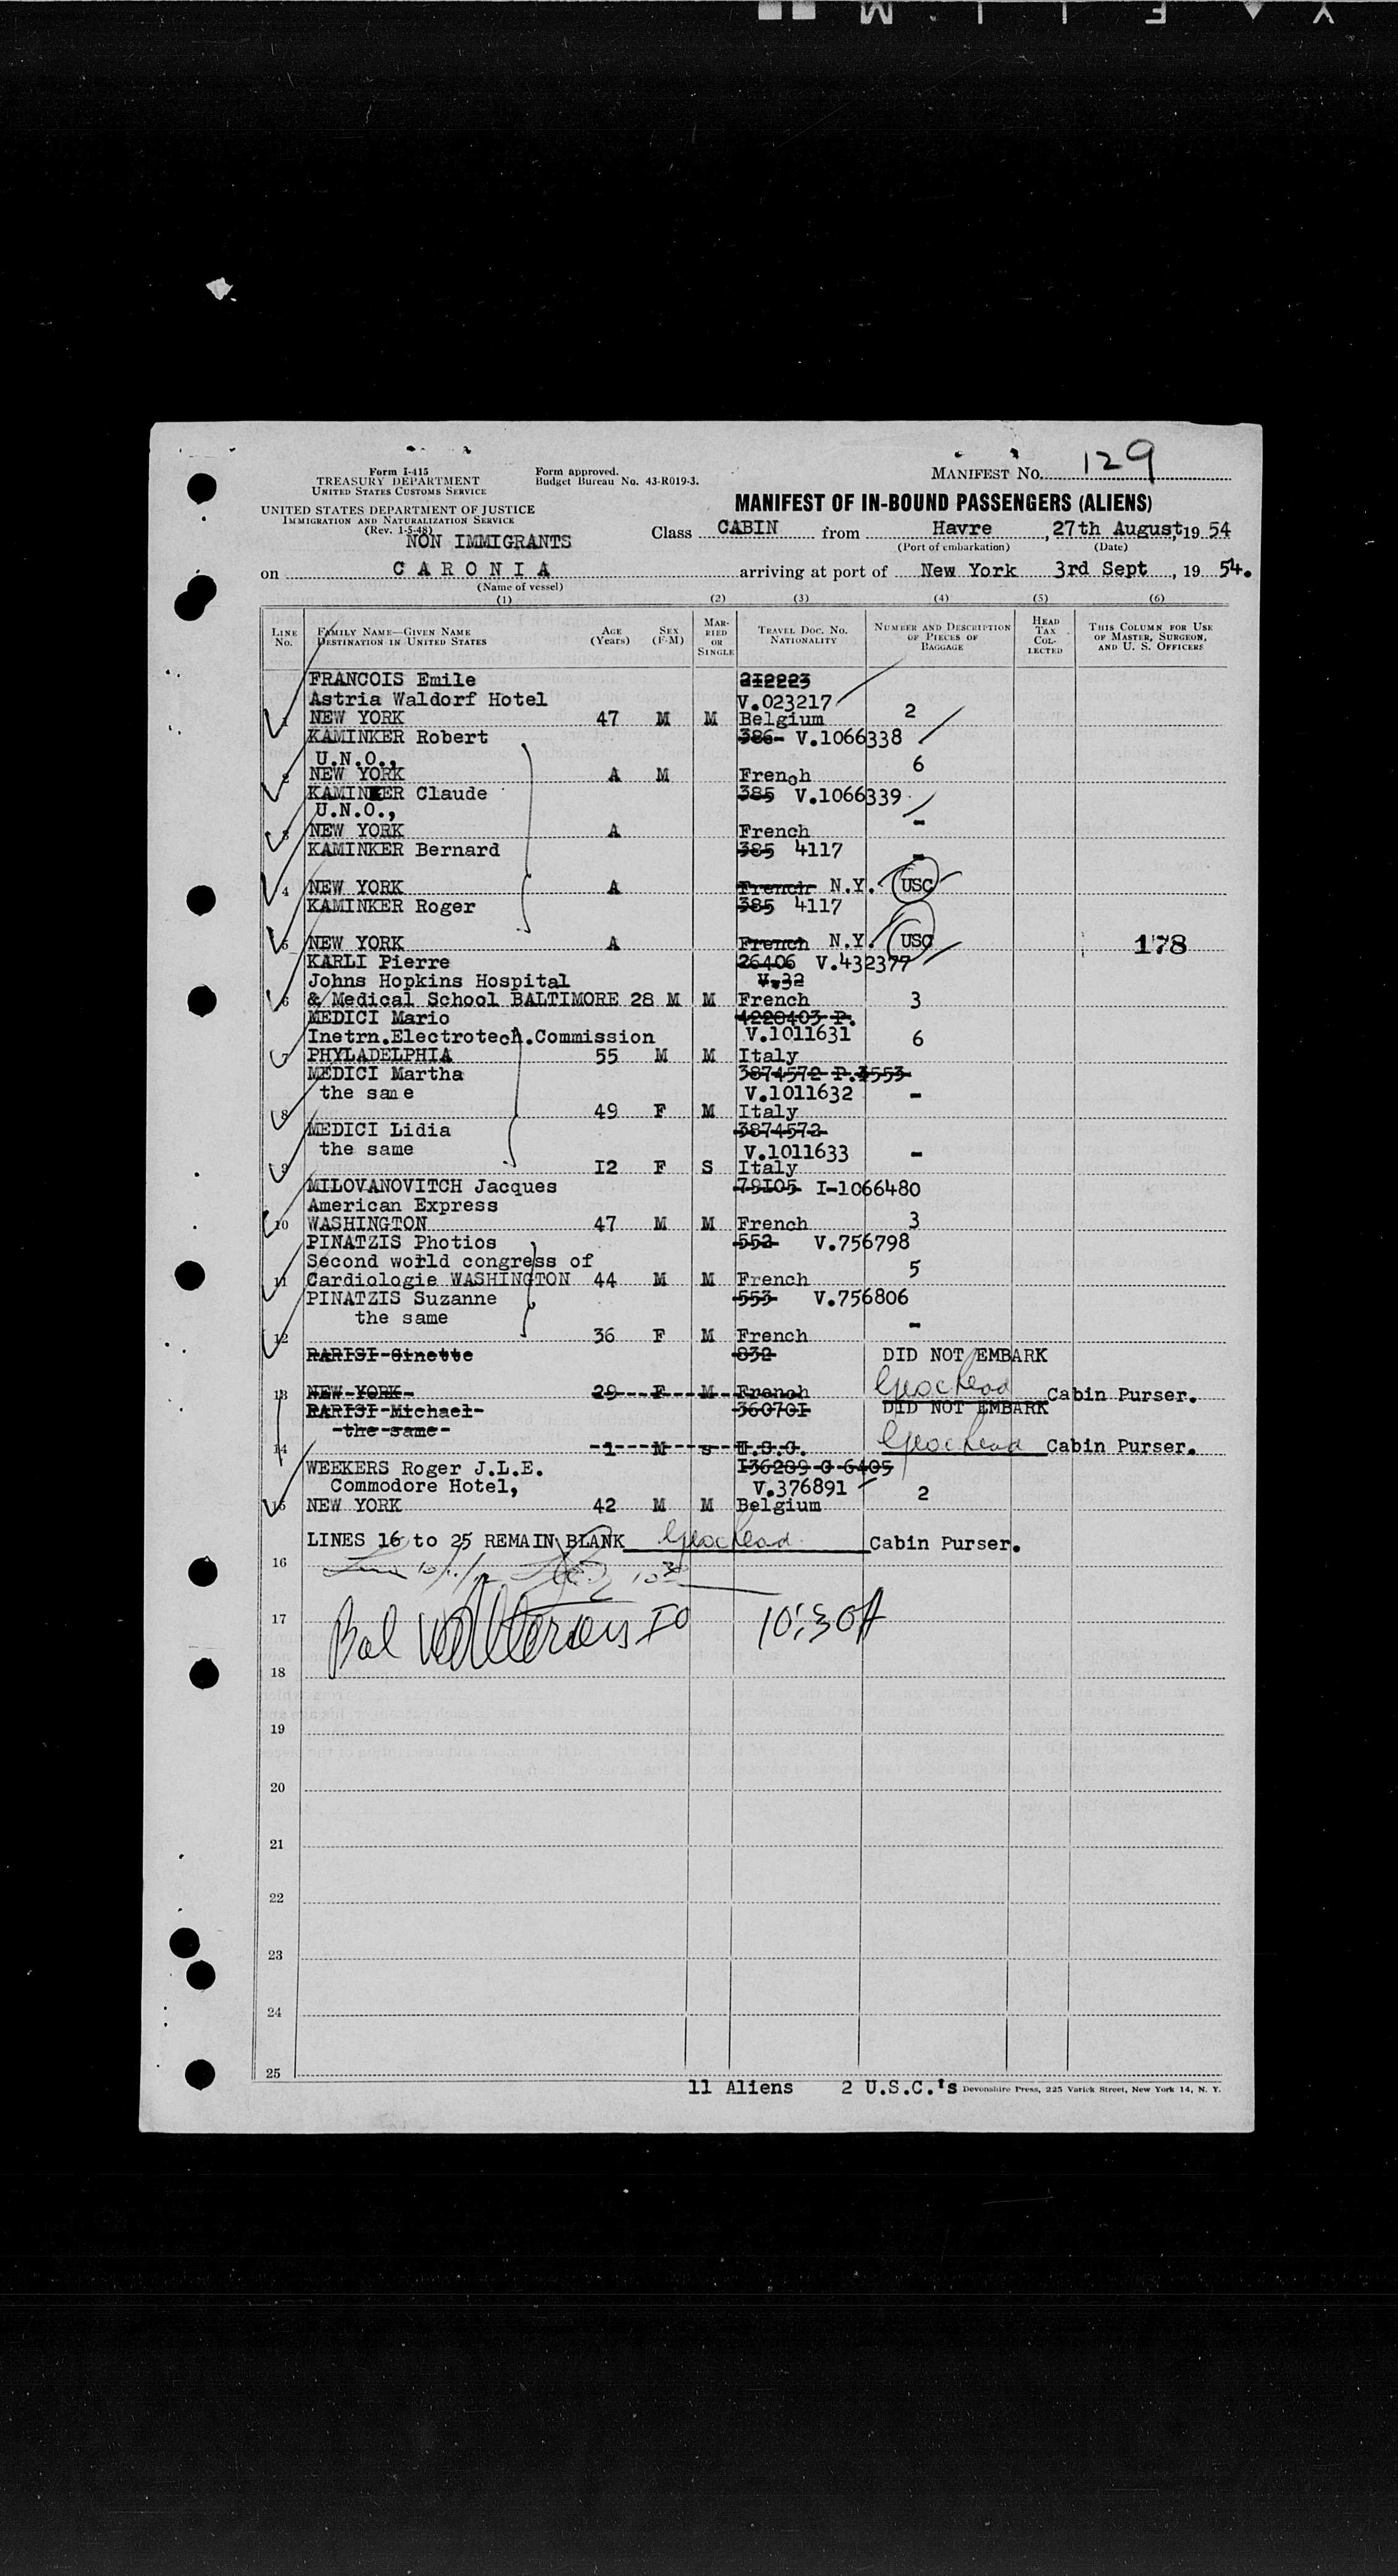 Form I-415
TREASURY DEPARTMENT
UNITED STATES CUSTOMS SERVICE
Form approved.
Budget Bureau No. 43-R019-3.
MANIFEST No. 129
UNITED STATES DEPARTMENT OF JUSTICE
IMMIGRATION AND NATURALIZATION SERVICE
(Rev. 1-5-48)
NON IMMIGRANTS
MANIFEST OF IN-BOUND PASSENGERS (ALIENS)
Class CABIN from Havre, 27th August, 19 54
(Port of embarkation) (Date)
on CARONIA arriving at port of New York 3rd Sept, 19 54.
(Name of vessel)
(1) (2) (3) (4) (5) (6)
LINE No. FAMILY NAME—GIVEN NAME DESTINATION IN UNITED STATES AGE (Years) SEX (F-M) MARRIED OR SINGLE TRAVEL DOC. NO. NATIONALITY NUMBER AND DESCRIPTION OF PIECES OF BAGGAGE HEAD TAX COLLECTED THIS COLUMN FOR USE OF MASTER, SURGEON, AND U. S. OFFICERS
FRANCOIS Emile 212223
Astria Waldorf Hotel V.023217
1 NEW YORK 47 M M Belgium 2
KAMINKER Robert 386- V.1066338
U.N.O., 6
2 NEW YORK A M French
KAMINKER Claude 385 V.1066339
U.N.O., -
3 NEW YORK A French
KAMINKER Bernard 385 4117 -
4 NEW YORK A French N.Y. USC
KAMINKER Roger 385 4117
5 NEW YORK A French N.Y. USC 178
KARLI Pierre 26406 V.432377
Johns Hopkins Hospital V.32
6 & Medical School BALTIMORE 28 M M French 3
MEDICI Mario 4228403 P.
Inetrn.Electrotech.Commission V.1011631 6
7 PHYLADELPHIA 55 M M Italy
MEDICI Martha 3874572 P.3553
the same V.1011632 -
8 49 F M Italy
MEDICI Lidia 3874572
the same V.1011633 -
9 I2 F S Italy
MILOVANOVITCH Jacques 79I05 I-1066480
American Express
10 WASHINGTON 47 M M French 3
PINATZIS Photios 552 V.756798
Second world congress of 5
11 Cardiologie WASHINGTON 44 M M French
PINATZIS Suzanne 553 V.756806
the same -
12 36 F M French
RARISI Ginette 832 DID NOT EMBARK
13 NEW YORK 29 F M French Cabin Purser.
RARISI Michael 36070I DID NOT EMBARK
the same
14 1 M s U.S.C. Cabin Purser.
WEEKERS Roger J.L.E. I36289 G 6405
Commodore Hotel, V.376891 2
15 NEW YORK 42 M M Belgium
LINES 16 to 25 REMAIN BLANK Cabin Purser.
16
17 IO 10:30A
18
19
20
21
22
23
24
25
11 Aliens 2 U.S.C.'s Devonshire Press, 225 Varick Street, New York 14, N. Y.